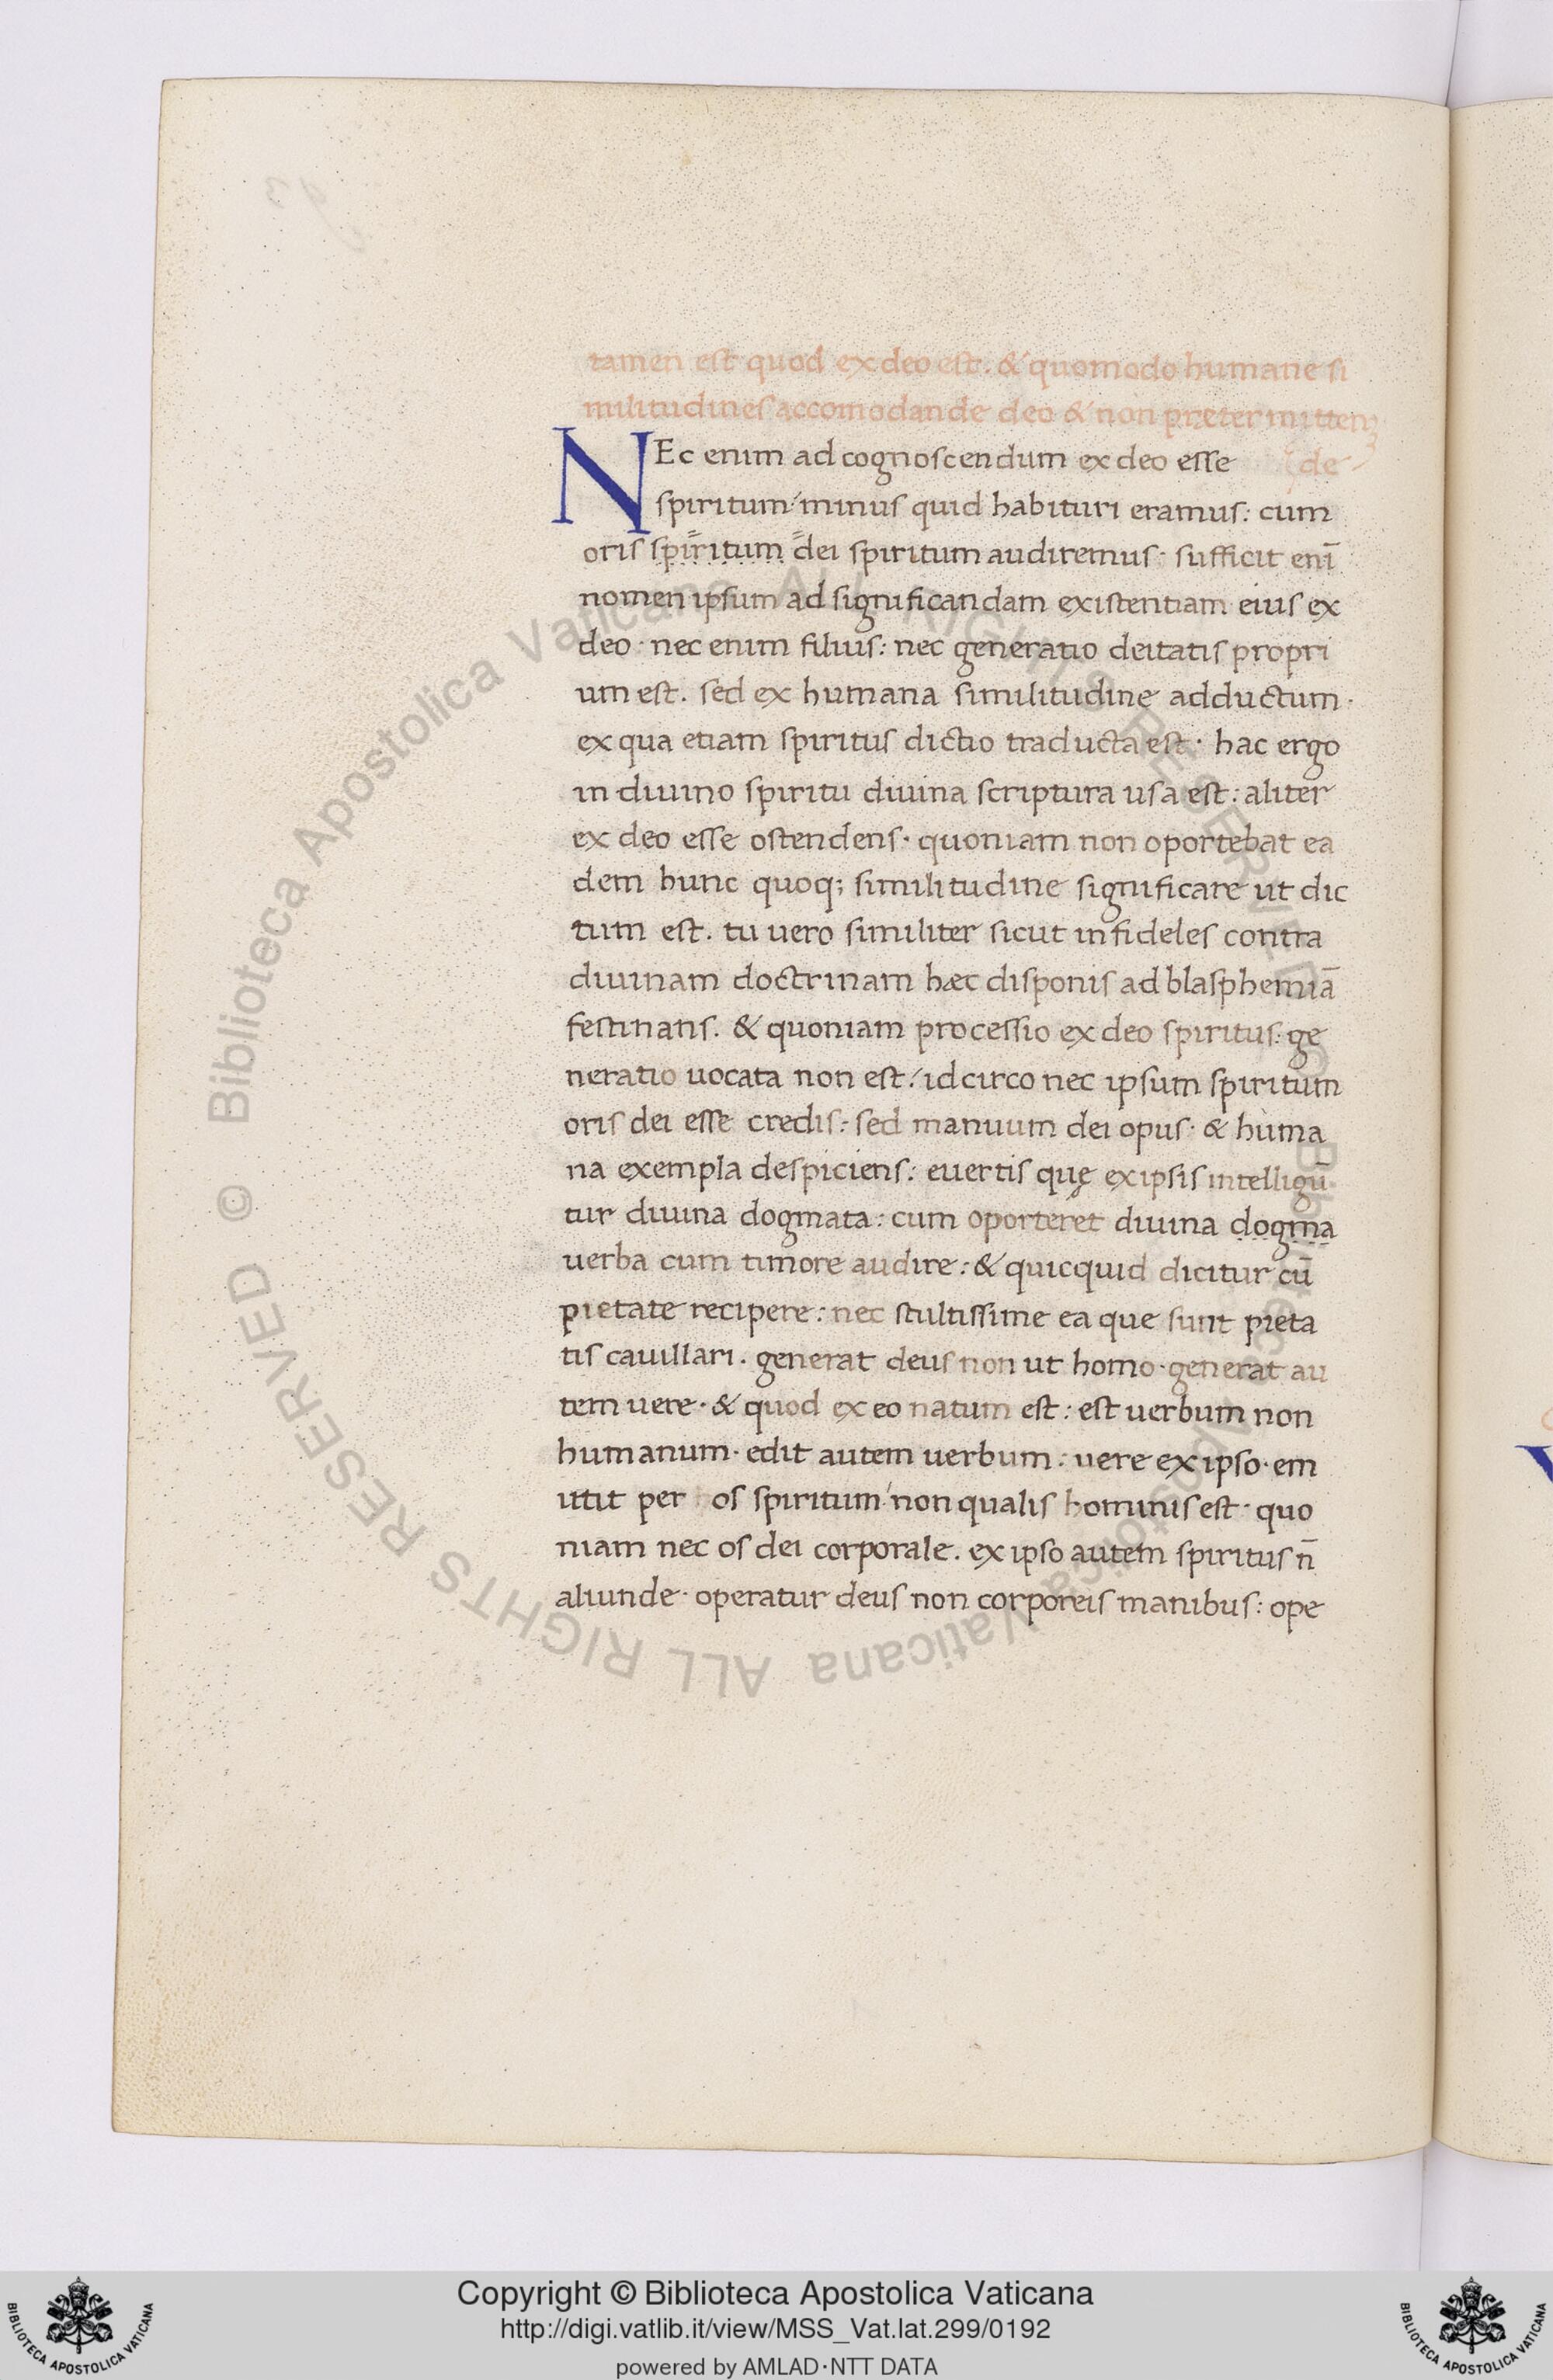 tamen est quod ex deo est. & quomodo humane si
militudines accomodande deo & non preter mitten
de
NEc enim ad cognoscendum ex deo esse
spiritum minus quid habituri eramus: cum
oris spiritum dei spiritum audiremus· sufficit enī
nomen ipsum ad significandam existentiam eius ex
deo· nec enim filius: nec generatio deitatis propri
um est. sed ex humana similitudine adductum·
ex qua etiam spiritus dictio traducta est· hac ergo
in diuino spiritu diuina scriptura usa est: aliter
ex deo esse ostendens· quoniam non oportebat ea
dem hunc quoq; similitudine significare ut dic
tum est. tu uero similiter sicut infideles contra
diuinam doctrinam hæc disponis ad blasphemiā
festinans. & quoniam processio ex deo spiritus: ge
neratio uocata non est: idcirco nec ipsum spiritum
oris dei esse credis: sed manuum dei opus· & huma
na exempla despiciens: euertis quę ex ipsis intelligū
tur diuina dogmata: cum oporteret diuina dogma
uerba cum timore audire: & quicquid dicitur cū
pietate recipere: nec stultissime ea que sunt pieta
tis cauillari. generat deus non ut homo· generat au
tem uere· & quod ex eo natum est: est uerbum non
humanum· edit autem uerbum: uere ex ipso· em
itit per os spiritum non qualis hominis est· quo
niam nec os dei corporale. ex ipso autem spiritus n̄
aliunde· operatur deus non corporeis manibus: ope
© Biblioteca Apostolica Vaticana ALL RIGHTS RESERVED © Biblioteca Apostolica Vaticana ALL RIGHTS RESERVED
Copyright © Biblioteca Apostolica Vaticana
http://digi.vatlib.it/view/MSS_Vat.lat.299/0192
powered by AMLAD·NTT DATA
BIBLIOTECA APOSTOLICA VATICANA
BIBLIOTECA APOSTOLICA VATICANA